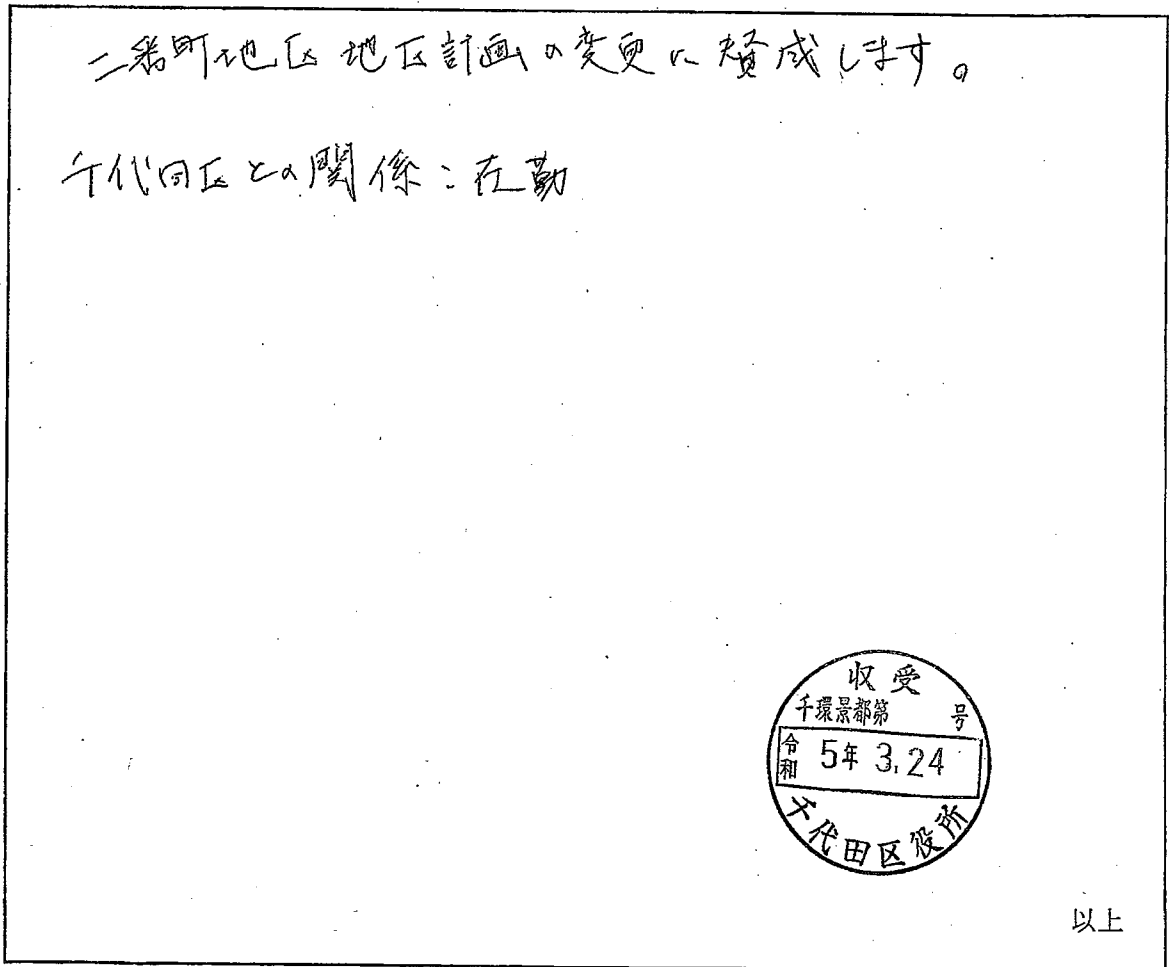 二番町地区地区計画の変更に賛成します。
千代田区との関係：在勤
収受
千環景都第　号
令和 5年 3.24
千代田区役所
以上